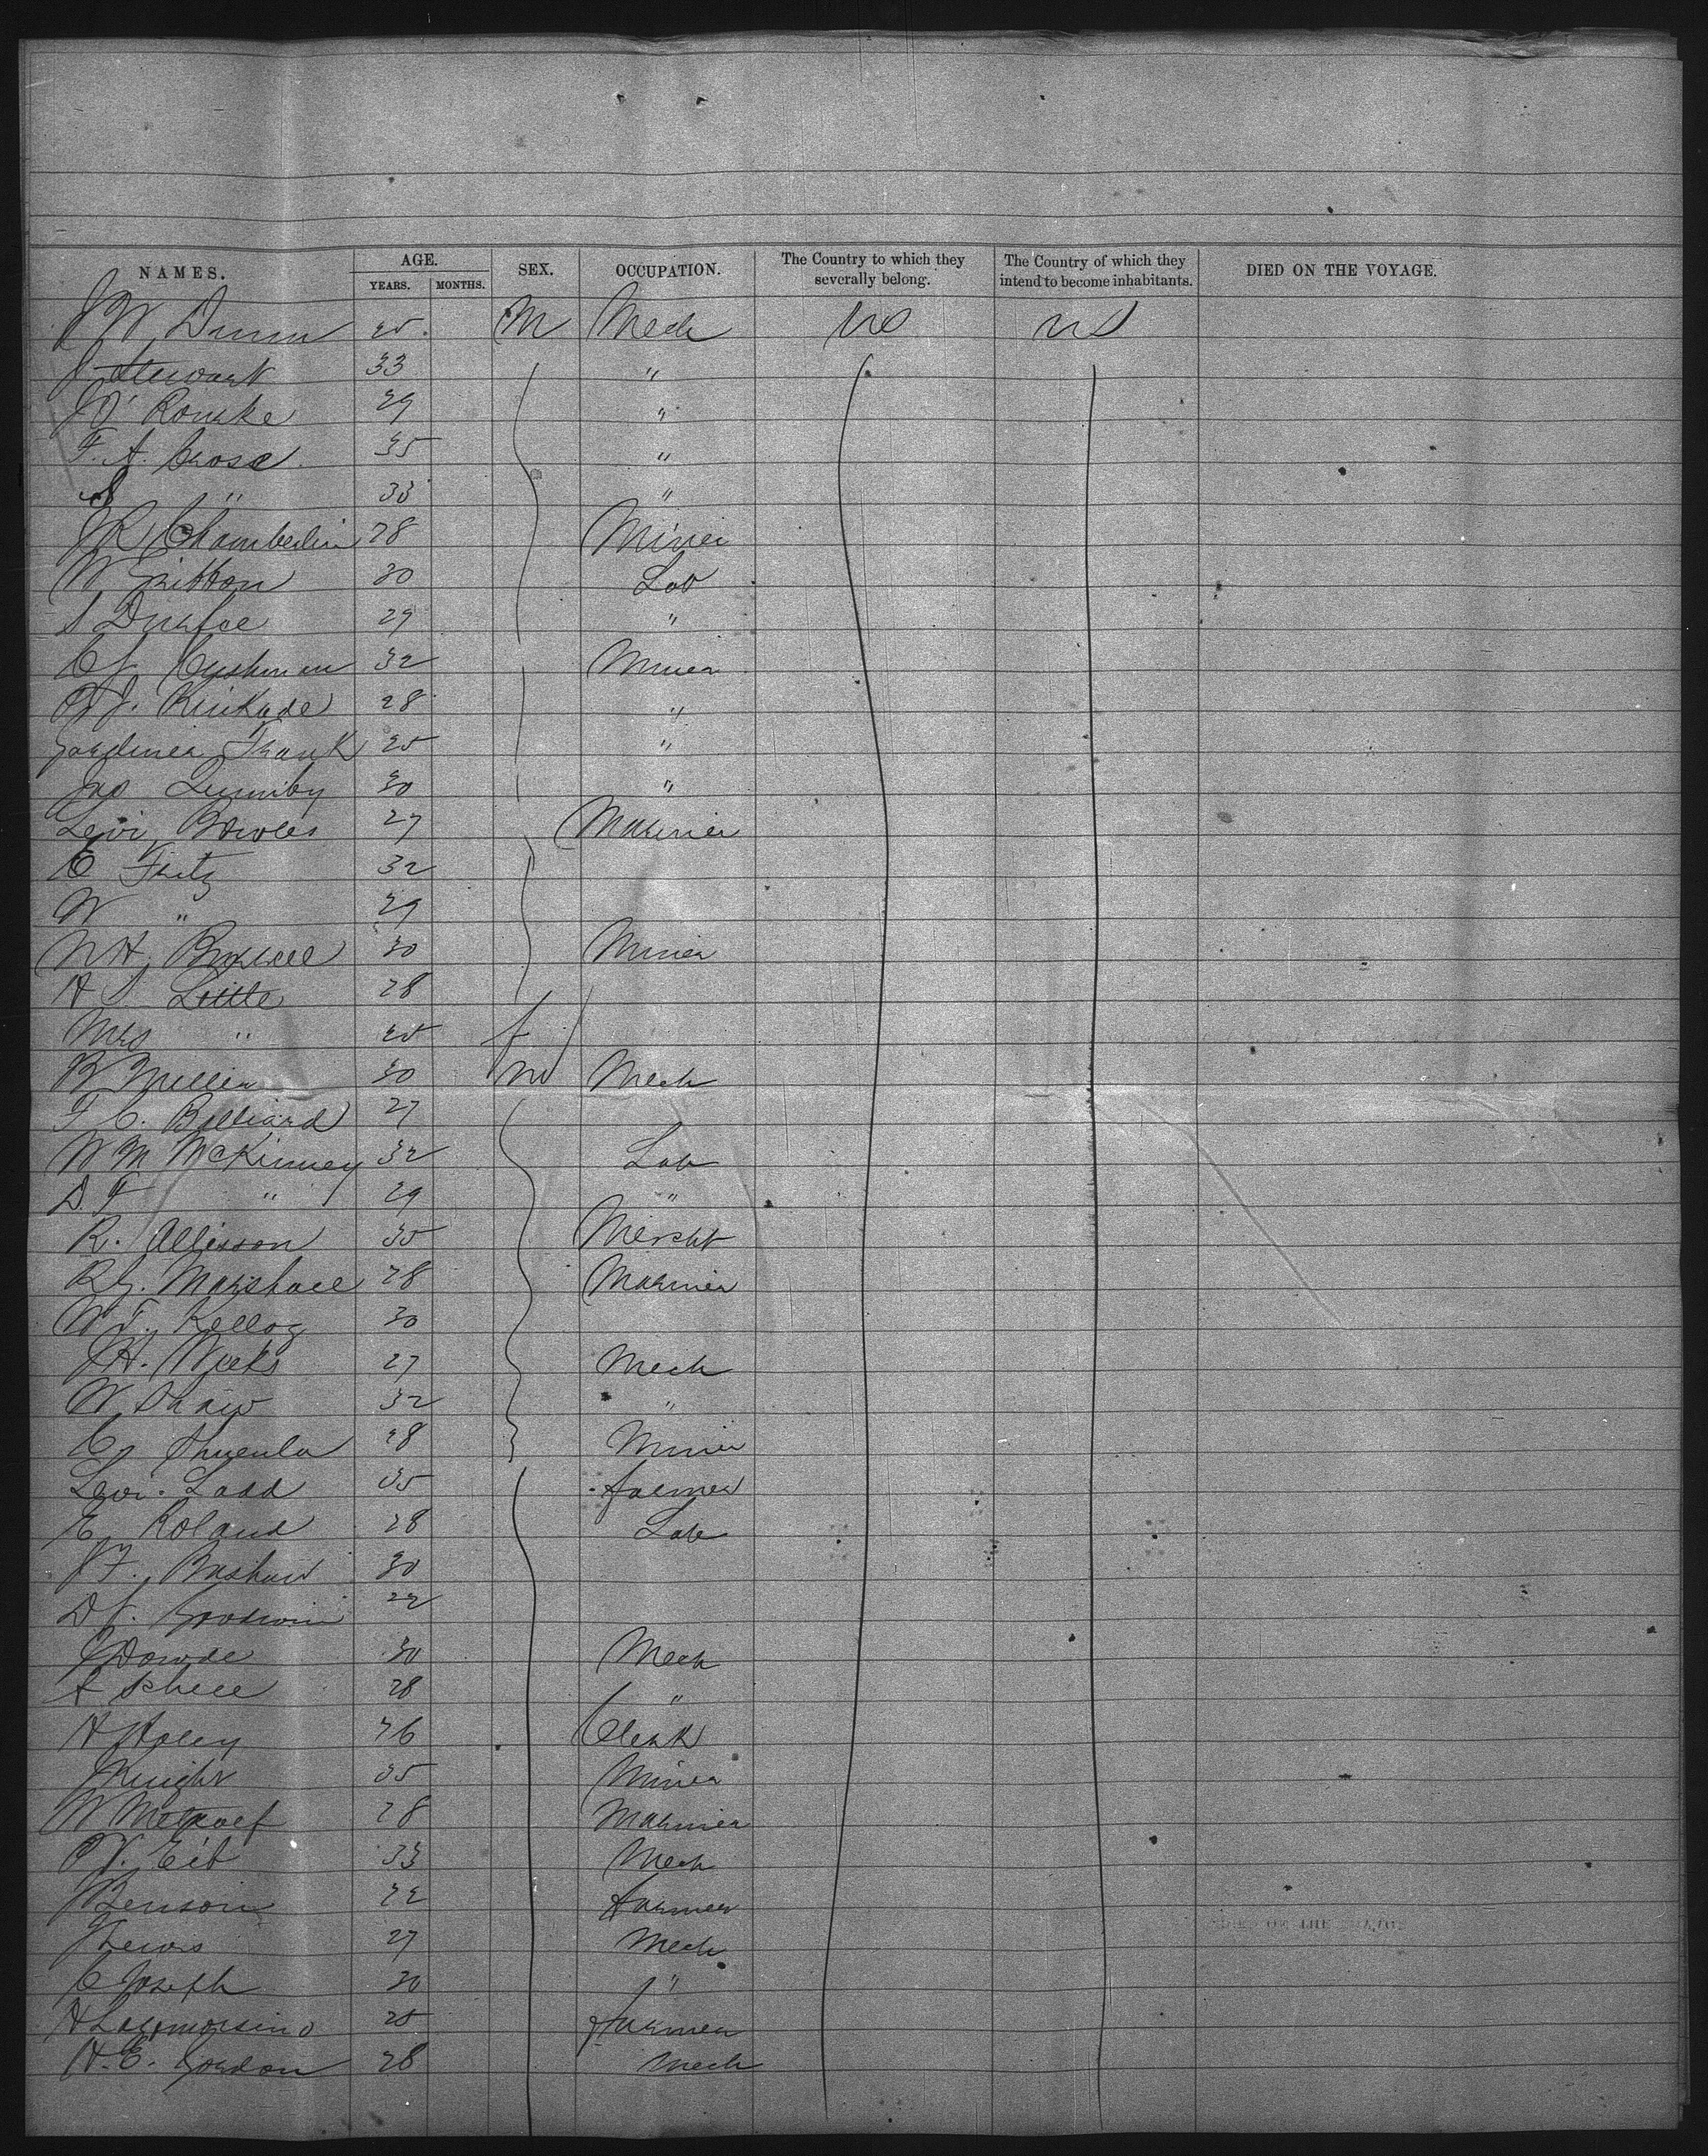 NAMES. AGE. SEX. OCCUPATION. The Country to which they severally belong. The Country of which they intend to become inhabitants. DIED ON THE VOYAGE.
YEARS. MONTHS.
J W Dunn 25. M Mech US US
J Stewart 33 "
J O'Rourke 29 "
F. A. Crose 35 "
" 33 "
J R Chamberlin 28 Miner
W Gritton 30 Lab
S Durfee 29 "
C J. Cushman 32 Miner
J. Kinkade 28 "
Gardiner Frank 25 "
Jno Quimby 30 "
Levi Bowles 27 Mariner
E Fritz 32
W " 29
N H. 30 Miner
H S Little 28
Mrs " 25 f
B Miller 30 M Mech
F C. Billiard 27
W M McKinney 32 Lab
D. F " 29 "
R. Allisson 35 Mercht
R G. Marshall 28 Mariner
W F. Kellog 30
J H. Weeks 27 Mech
W Shaw 32 "
C. 28 Miner
Levi. Ladd 35 farmer
E. Roland 28 Lab
J F. Bashaw 30
D F. Goodwin 22
J Dowde 30 Mech
A Schell 28 "
H Haley 26 Clerk
J Knight 35 Miner
W Metcalf 28 Mariner
Eib 33 Mech
J Benson 32 farmer
J Lewis 27 Mech
C Joseph 30 "
H Lagomorsino 25 farmer
H. E. Gordon 28 Mech